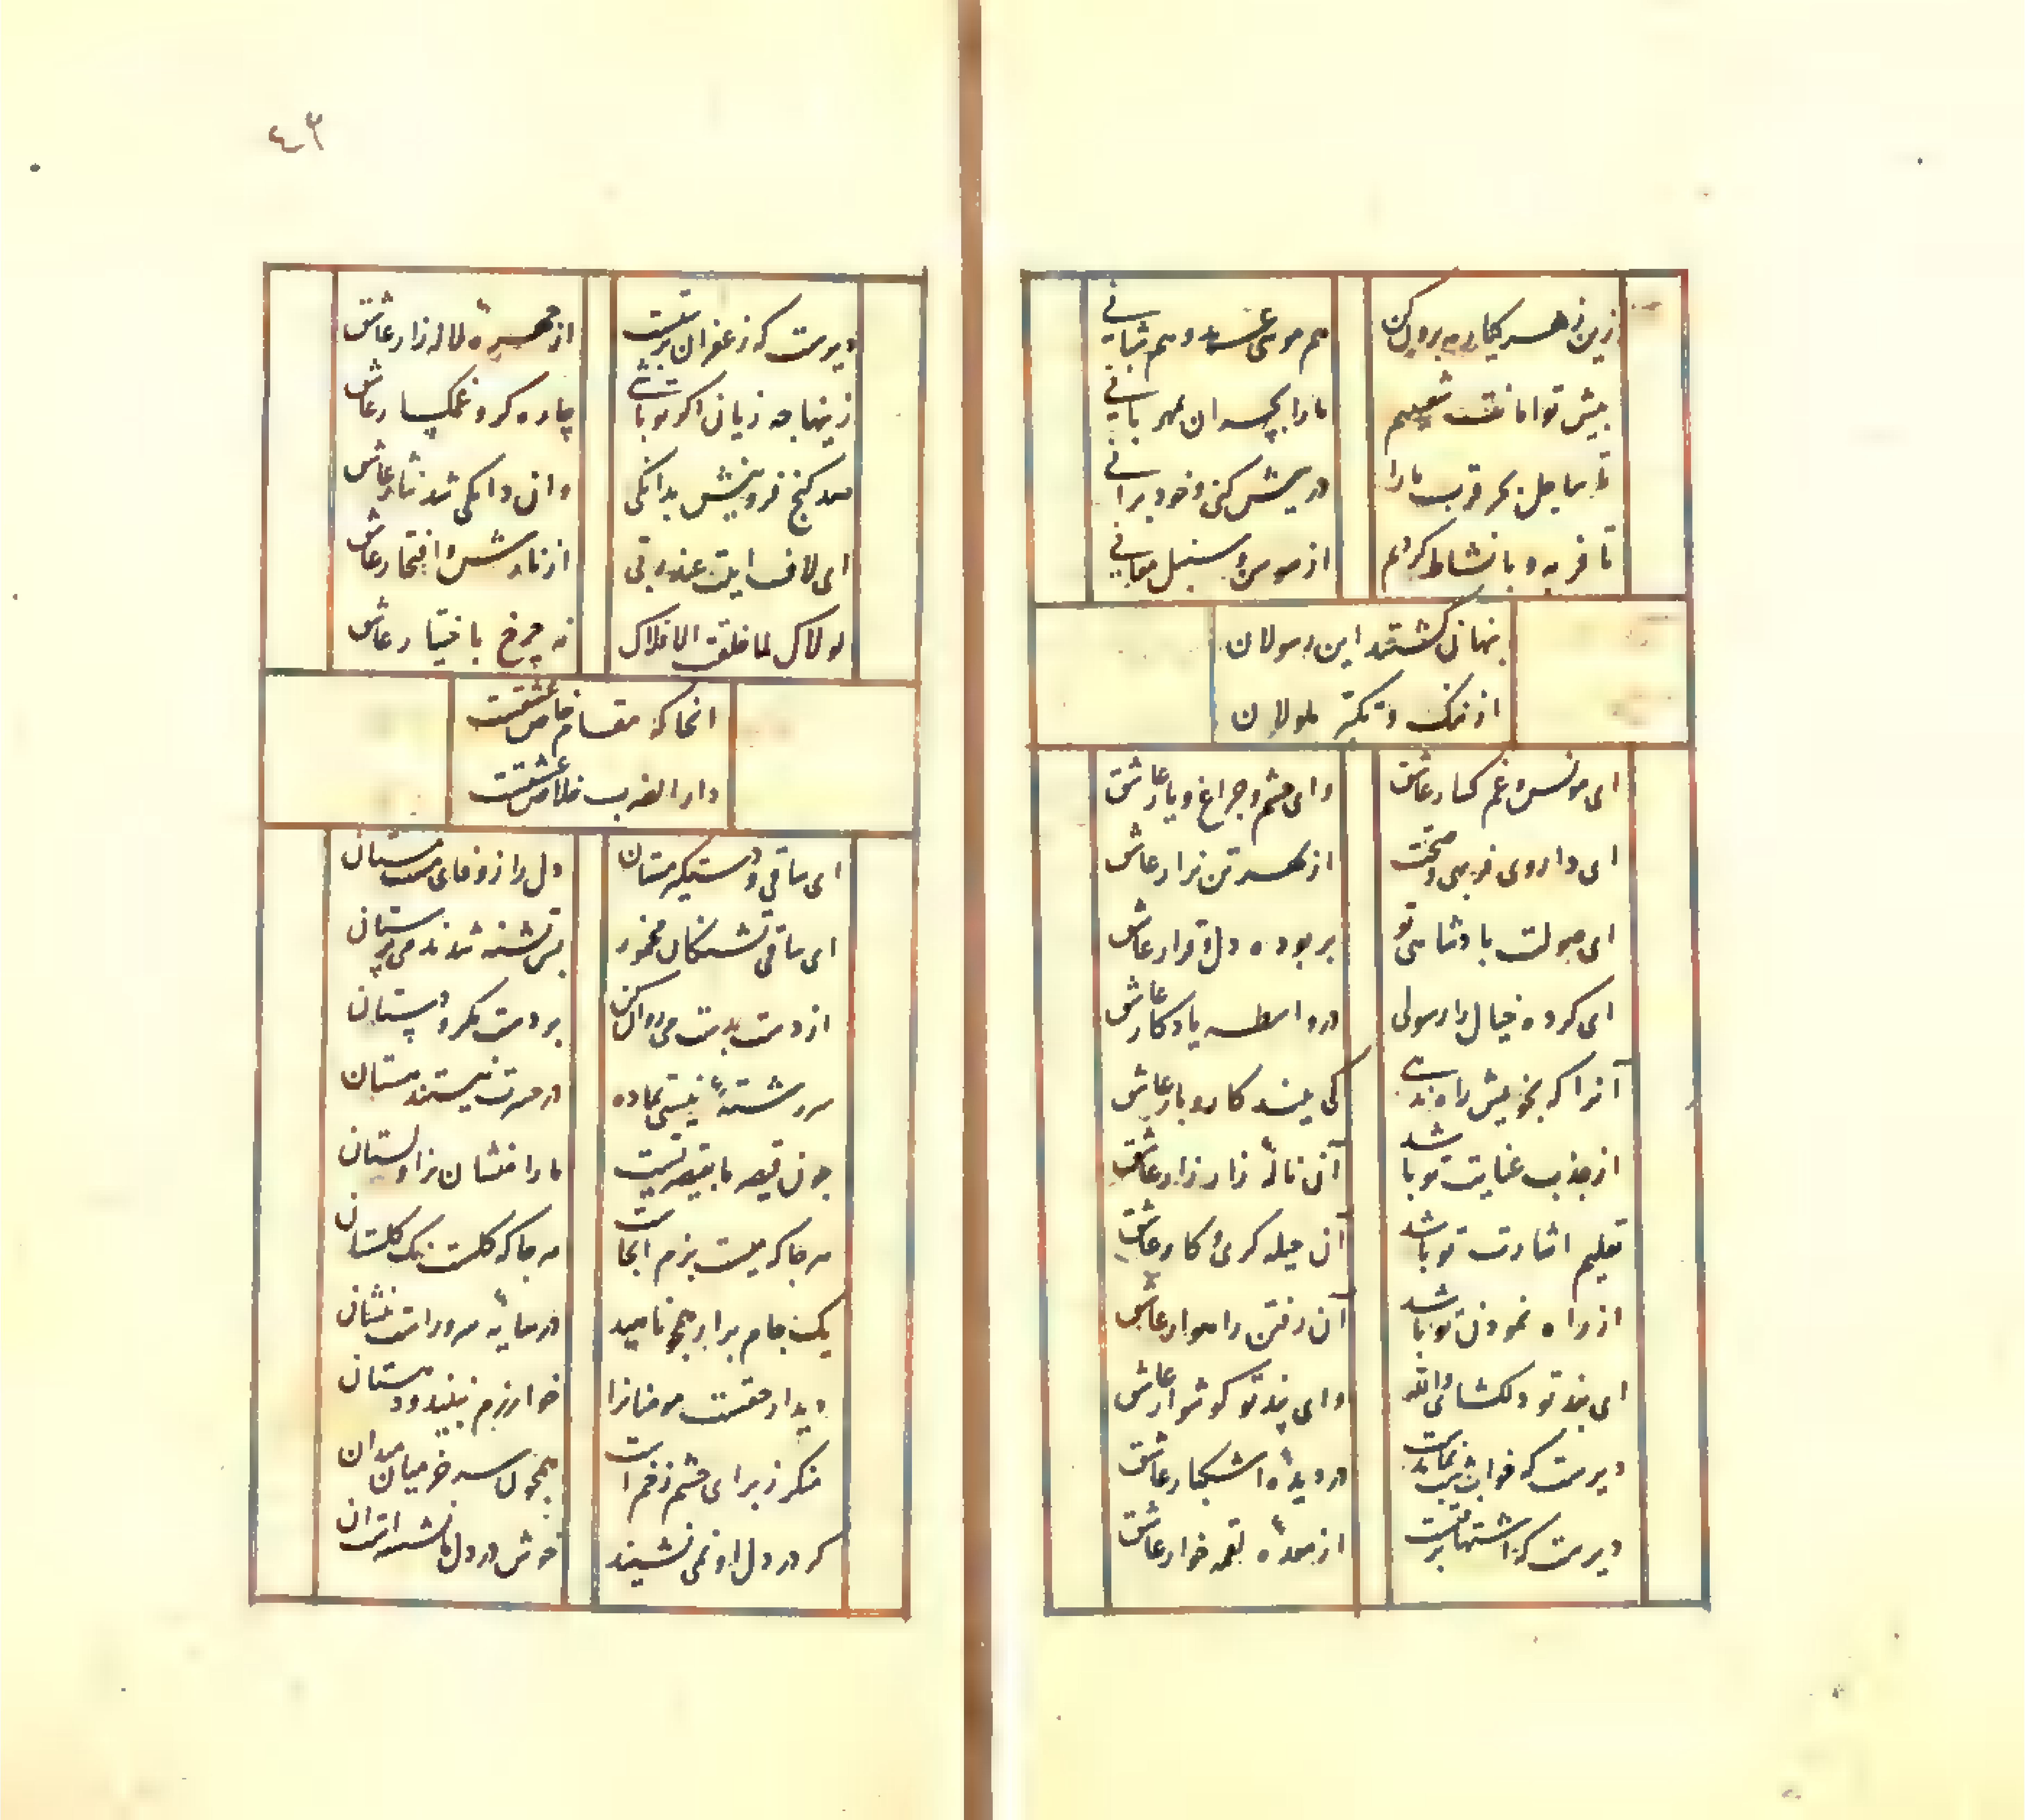 زین زهر یکباره بیرون کن
هم موسی عهد و هم شبانی
پیش تو امانت شعیبیم
ما را بچران بمهربانی
تا ساحل بحر قرب ما را
در پیش کنی و خود برانی
تا فربه و با نشاط کردیم
از سوسن و سنبل معانی
پنهان کشتند این رسولان
از ننک و تکبر ملولان
ای مونس و غم کسار عاشق
وای چشم و چراغ و یار عاشق
ای داروی فربهی و صحت
از بهر تن نزار عاشق
ای صولت بادشاهی تو
بربوده دل و قرار عاشق
ای کرده خیال را رسولی
در واسطه یادکار عاشق
آنرا که بخویش راه ندهی
کی بیند کار و بار عاشق
از جذب عنایت تو باشد
آن نالهٔ زار زار عاشق
تعلیم اشارت تو باشد
آن حیله کری کار عاشق
از راه نمودن تو باشد
آن رفتن راهوار عاشق
ای بند تو دلکشای والله
وای پند تو کوشوار عاشق
دیرست که خواب شب نماندست
در دیدهٔ اشکبار عاشق
دیرست که اشتها برفتست
از معدهٔ لقمه خوار عاشق
٤٣
دیرست که زعفران برستست
از چهرهٔ لاله زار عاشق
زینها چه زیان اکر تو باشی
چاره کر و غمکسار عاشق
صد کنج فروشیش بدانکی
وان دانکی شد نثار عاشق
ای لاف ابیت عند ربی
از نازش و افتخار عاشق
لولاک لما خلقت الافلاک
نه چرخ با ختیار عاشق
انجا که مقام خاص عشقست
دار الضرب خلاص عشقست
ای ساقی و دستکیر مستان
دل را ز وفای مست مستان
ای ساقی تشنکان مخمور
بس تشنه شدند می پرستان
از دست بدست می روان کن
بر دست مکر و دستان
سر رشتهٔ نیستی بما ده
در حسرت نیستند مستان
چون قیصر ما بقیصریست
ما را منشان بزاولستان
هر جا که میست بزم انجاست
هر جا که کلست نک کلستان
یک جام برار همچو نامید
در سایهٔ سرو راست بنشان
دیدار حقست مومنانرا
خوارزم نبیند و دستان
منکر ز برای چشم زخم است
همچون سر خر میان میدان
کر در دل او نمی نشیند
خوش در دل ما نشسته است ان